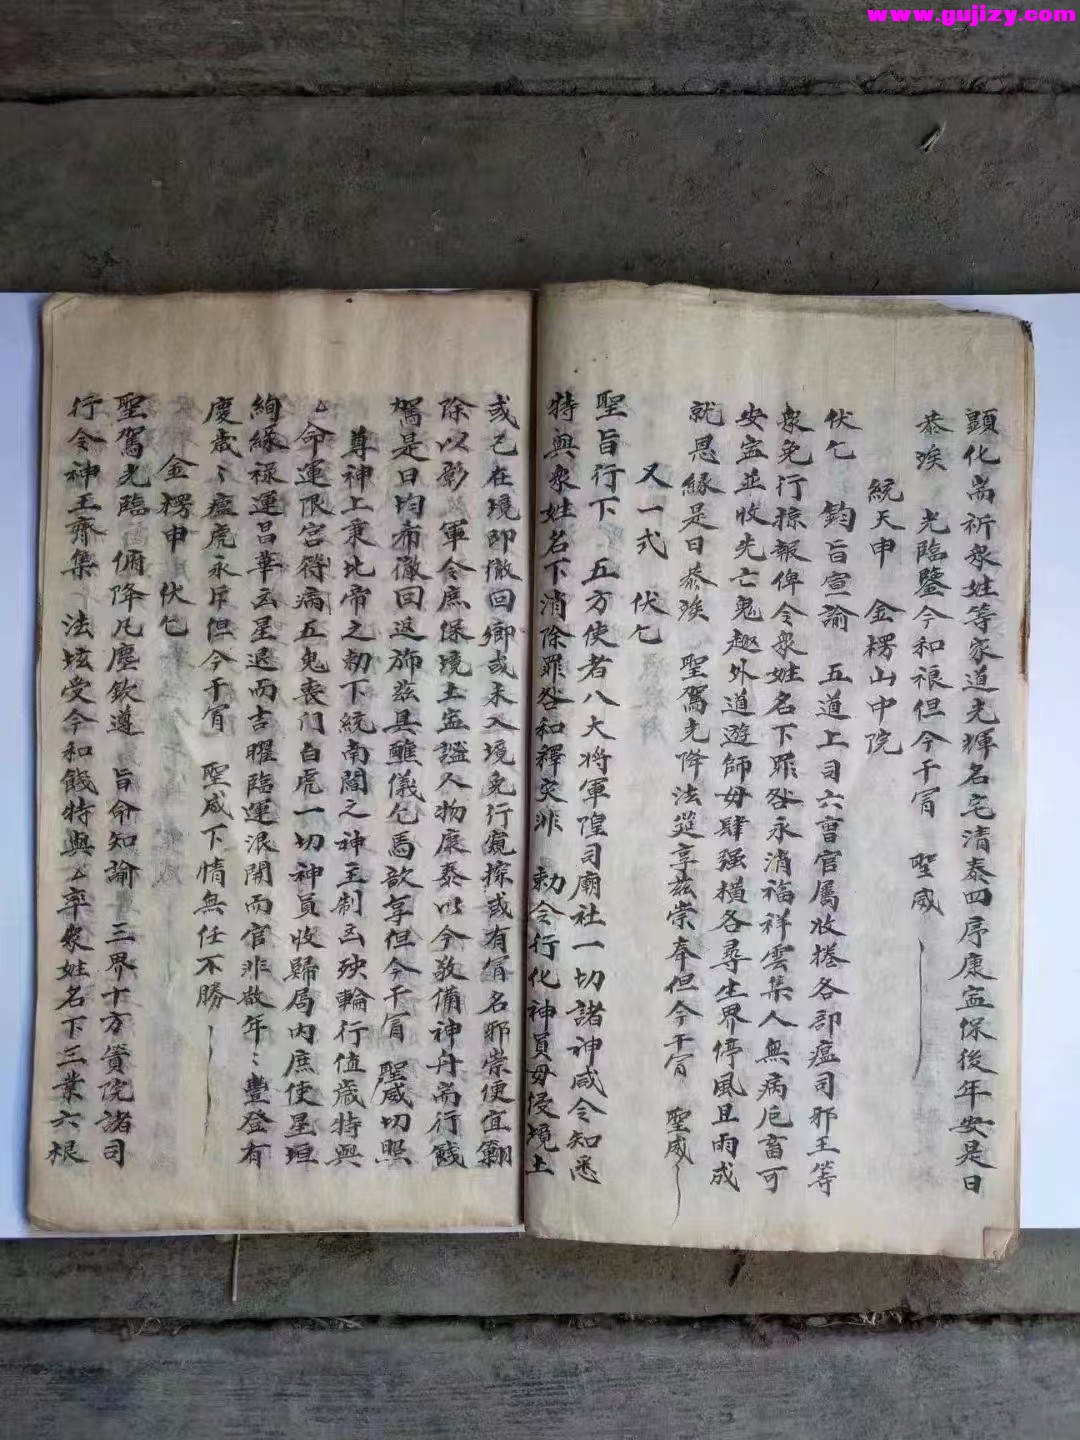 www.gujizy.com
顯化耑祈衆姓等家道光輝名宅清泰四序康寍保後年安是日
恭候 光臨鑒今和禳但今干冐 聖威
統天申 金楞山中院
伏乞 鈞旨宣諭 五道上司六曹官属收捲各部瘟司邪王等
衆免行掠報俾令衆姓名下罪咎永消福祥雲集人無病厄畜可
安寍並收先亡鬼趣外道遊師毋肆强横各尋生界停風且雨成
就恩緣是日恭候 聖駕光降法筵享兹崇奉但今干冐 聖威
又一式 伏乞
聖旨行下 五方使者八大将軍隍司廟社一切諸神咸令知悉
特與衆姓名下消除罪咎和釋灾非 勅令行化神員毋侵境土
或已在境即撤回鄉或未入境免行窺探或有冐名邪祟便宜勦
除以彰 軍令庶保境土寍謐人物康泰以今敬備神舟耑行餞
駕是日均布徹回返斾兹具醮儀乞焉歆享但今干冐 聖威切照
尊神上秉北帝之勅下統南閻之神主制凶殃輪行值歳特與
△命運限宫符病五鬼喪门白虎一切神員收歸局内庶使星垣
絢緣禄運昌華凶星退而吉曜臨運泯開而官非散年〻豐登有
慶歳〻瘟虎永斥但今干冐 聖威下情無任不勝
金楞申 伏乞
聖駕光臨 俯降凡塵欽遵 旨命知諭三界十方賫院諸司
行令神王齊集 法坛受今和餞特與△率衆姓名下三業六根